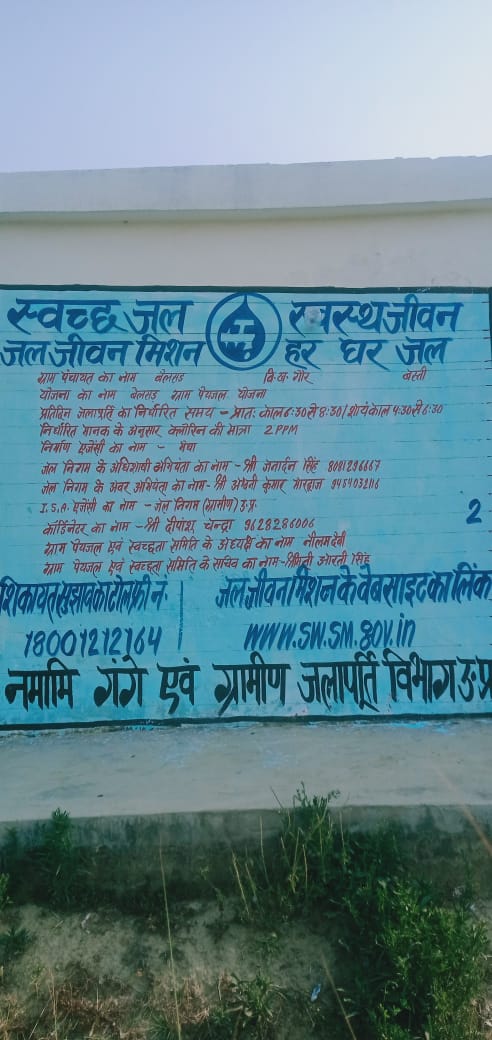 स्वच्छ जल स्वस्थ जीवन
जल जीवन मिशन हर घर जल
ग्राम पंचायत का नाम बेलसड़ वि.ख. गौर बस्ती
योजना का नाम बेलसड़ ग्राम पेयजल योजना
प्रतिदिन जलापूर्ति का निर्धारित समय - प्रातः काल 6:30 से 8:30/शायंकाल 4:30 से 6:30
निर्धारित मानक के अनुसार क्लोरिन की मात्रा 2 PPM
निर्माण एजेंसी का नाम - मेघा
जल निगम के अधिशाषी अभियंता का नाम - श्री जनार्दन सिंह 8081296667
जल निगम के अवर अभियंता का नाम - श्री अश्वनी कुमार भारद्वाज 9454032116
I.S.A. एजेंसी का नाम - जल निगम (ग्रामीण) उ.प्र.
कॉर्डिनेटर का नाम - श्री दीपांश चन्द्रा 9628286006
2
ग्राम पेयजल एवं स्वच्छता समिति के अध्यक्ष का नाम नीलम देवी
ग्राम पेयजल एवं स्वच्छता समिति के सचिव का नाम - श्रीमती आरती सिंह
शिकायत सुझाव का टोल फ्री नं. जल जीवन मिशन के वेबसाइट का लिंक
18001212164 www.sw.sm.gov.in
नमामि गंगे एवं ग्रामीण जलापूर्ति विभाग उ.प्र